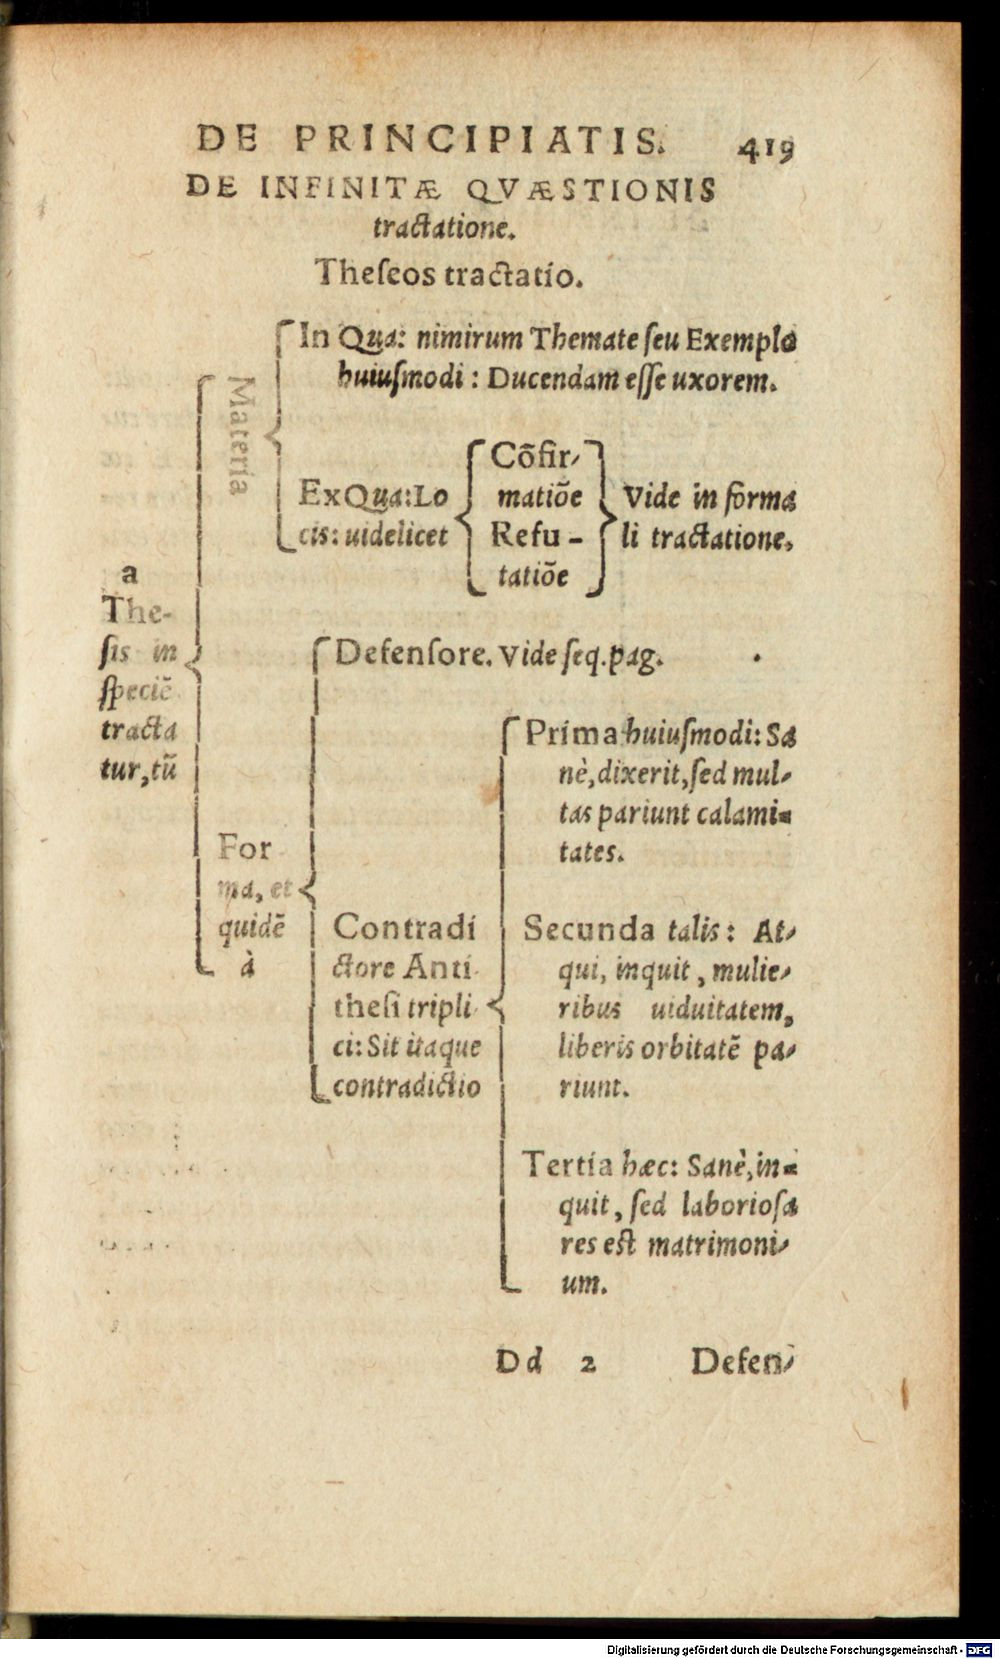 DE PRINCIPIATIS. 419
DE INFINITÆ QVÆSTIONIS
tractatione.
Theſeos tractatio.
a
The-
ſis in
ſpeciē
tracta
tur, tū
Materia
In Qua: nimirum Themate ſeu Exemplo
huiuſmodi: Ducendam eſſe uxorem.
Ex Qua: Lo
cis: uidelicet
Cōfir-
matiōe
Refu-
tatiōe
Vide in forma
li tractatione.
For
ma, et
quidē
à
Defenſore. Vide ſeq. pag.
Contradi
ctore Anti
theſi tripli
ci: Sit itaque
contradictio
Prima huiuſmodi: Sa
nè, dixerit, ſed mul-
tas pariunt calami-
tates.
Secunda talis: At-
qui, inquit, mulie-
ribus uiduitatem,
liberis orbitatē pa-
riunt.
Tertia hæc: Sanè, in-
quit, ſed laborioſa
res eſt matrimoni-
um.
Dd 2 Defen-
Digitalisierung gefördert durch die Deutsche Forschungsgemeinschaft - DFG